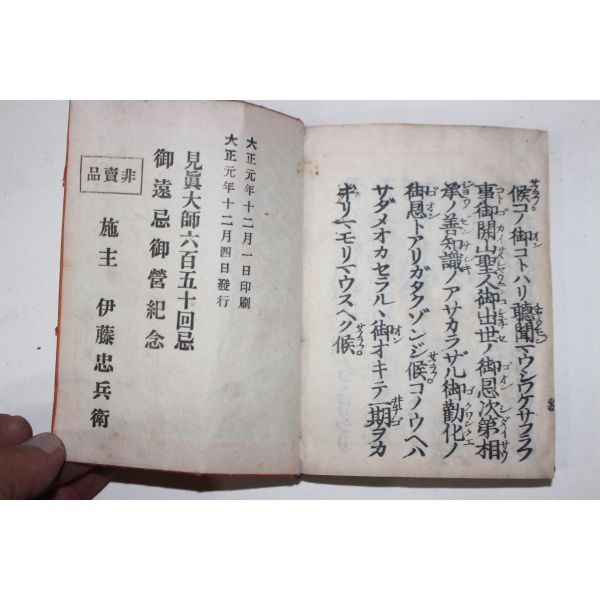 候コノ御コトハリ聽聞マウシワケサフラフ
事御開山聖人御出世ノ御恩次第相
承ノ善知識ノアサカラザル御勸化ノ
御恩トアリガタクゾンジ候コノウヘハ
サダメオカセラルヽ御オキテ一期ヲカ
ギリマモリマウスヘク候
大正元年十二月一日印刷
大正元年十二月四日發行
見眞大師六百五十回忌
御遠忌御營紀念
施主 伊藤忠兵衛
非賣品